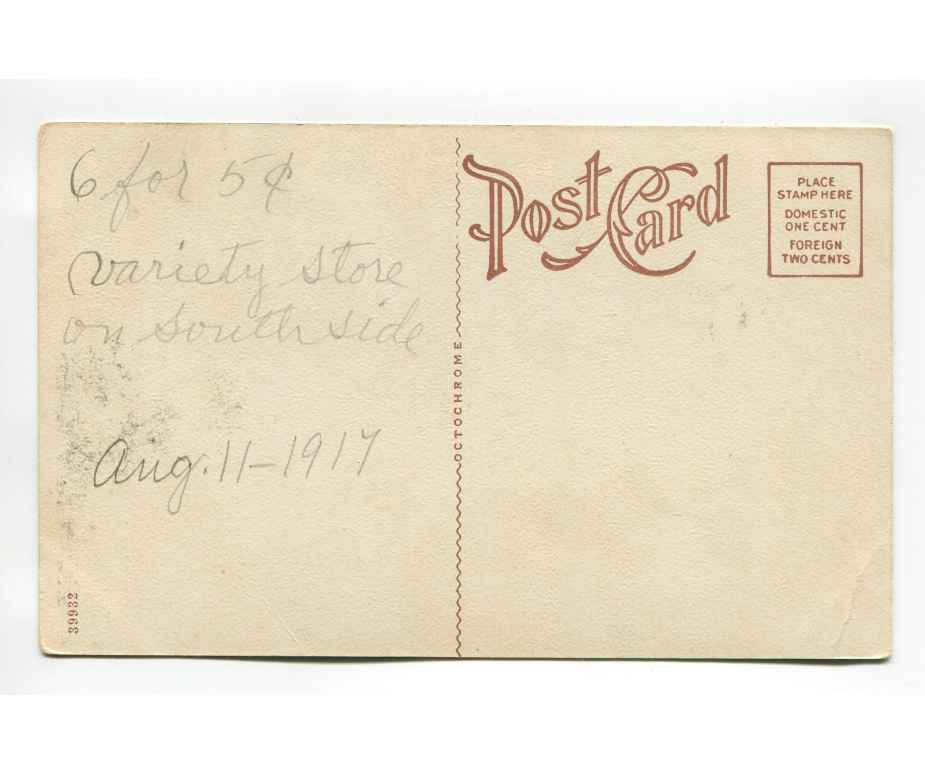 6 for 5¢
variety store
on south side
Aug. 11-1917
39932
OCTOCHROME
Post Card
PLACE
STAMP HERE
DOMESTIC
ONE CENT
FOREIGN
TWO CENTS